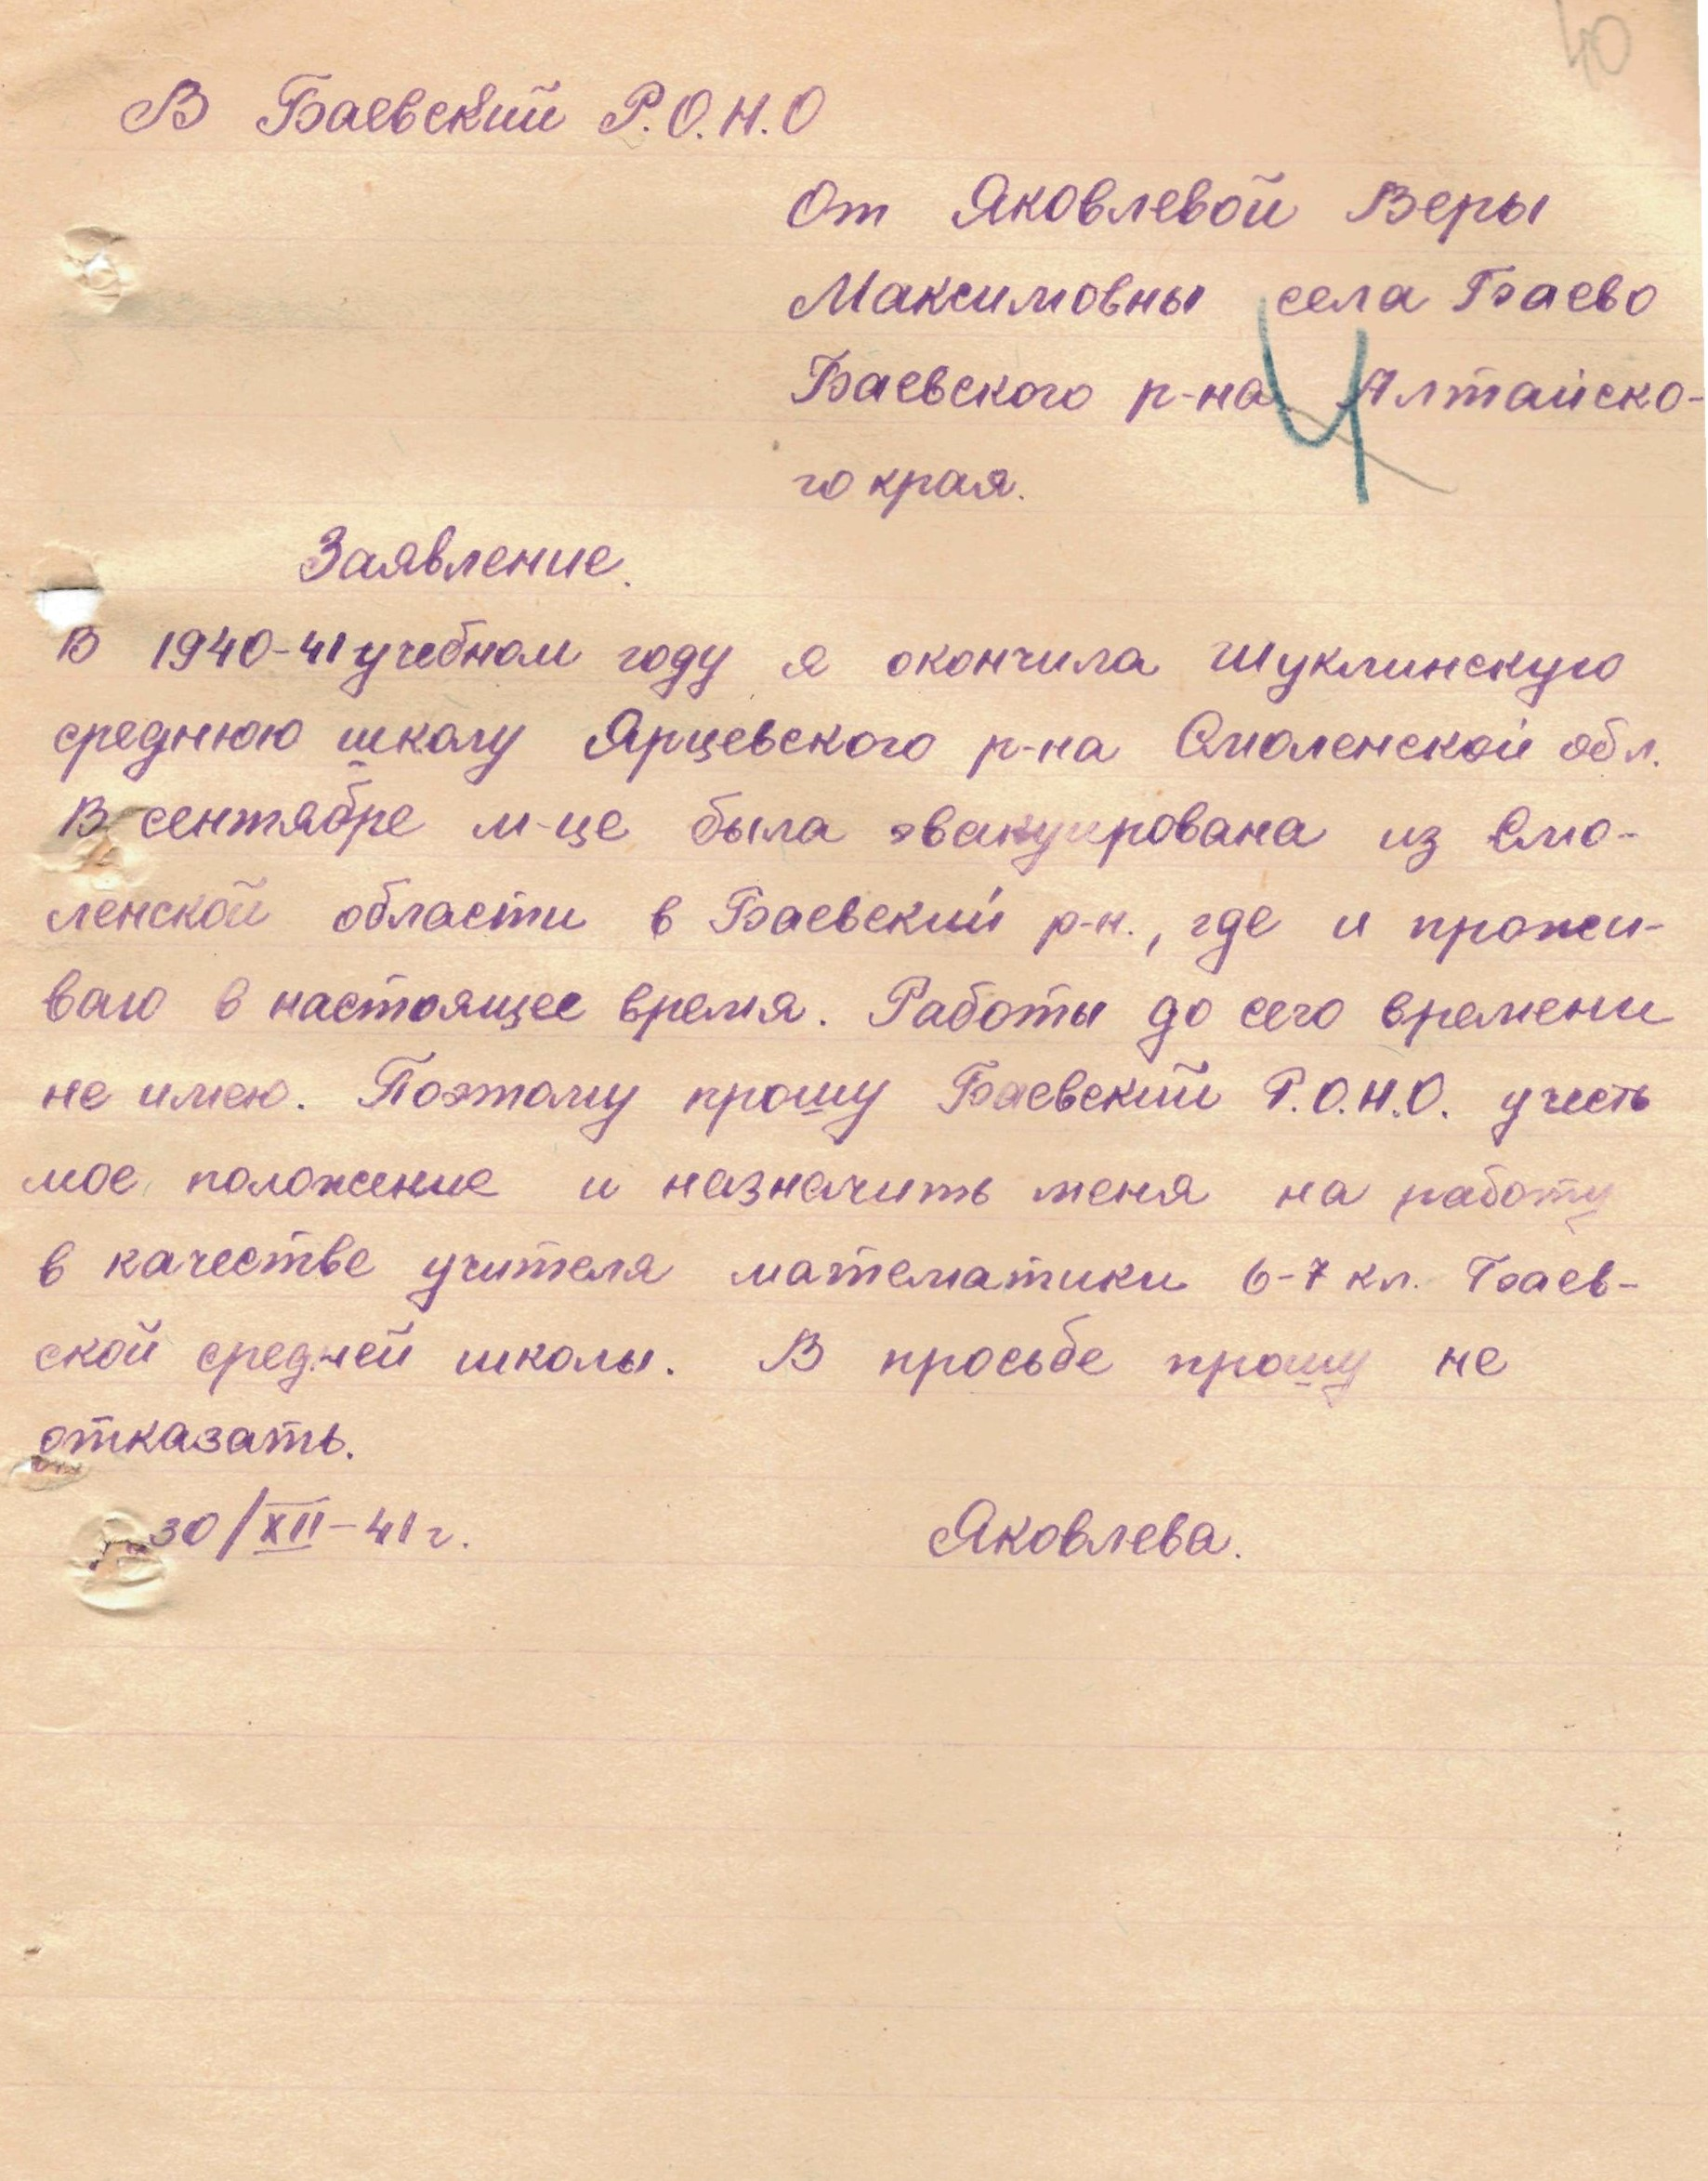 40
В Баевский Р.О.Н.О
От Яковлевой Веры
Максимовны села Баево
Баевского р-на Алтайско-
го края.
Заявление.
В 1940-41 учебном году я окончила Шуклинскую
среднюю школу Ярцевского р-на Смоленской обл.
В сентябре м-це была эвакуирована из Смо-
ленской области в Баевский р-н., где и прожи-
ваю в настоящее время. Работы до сего времени
не имею. Поэтому прошу Баевский Р.О.Н.О. учесть
мое положение и назначить меня на работу
в качестве учителя математики 6-7 кл. Баев-
ской средней школы. В просьбе прошу не
отказать.
30/XII-41 г. Яковлева.